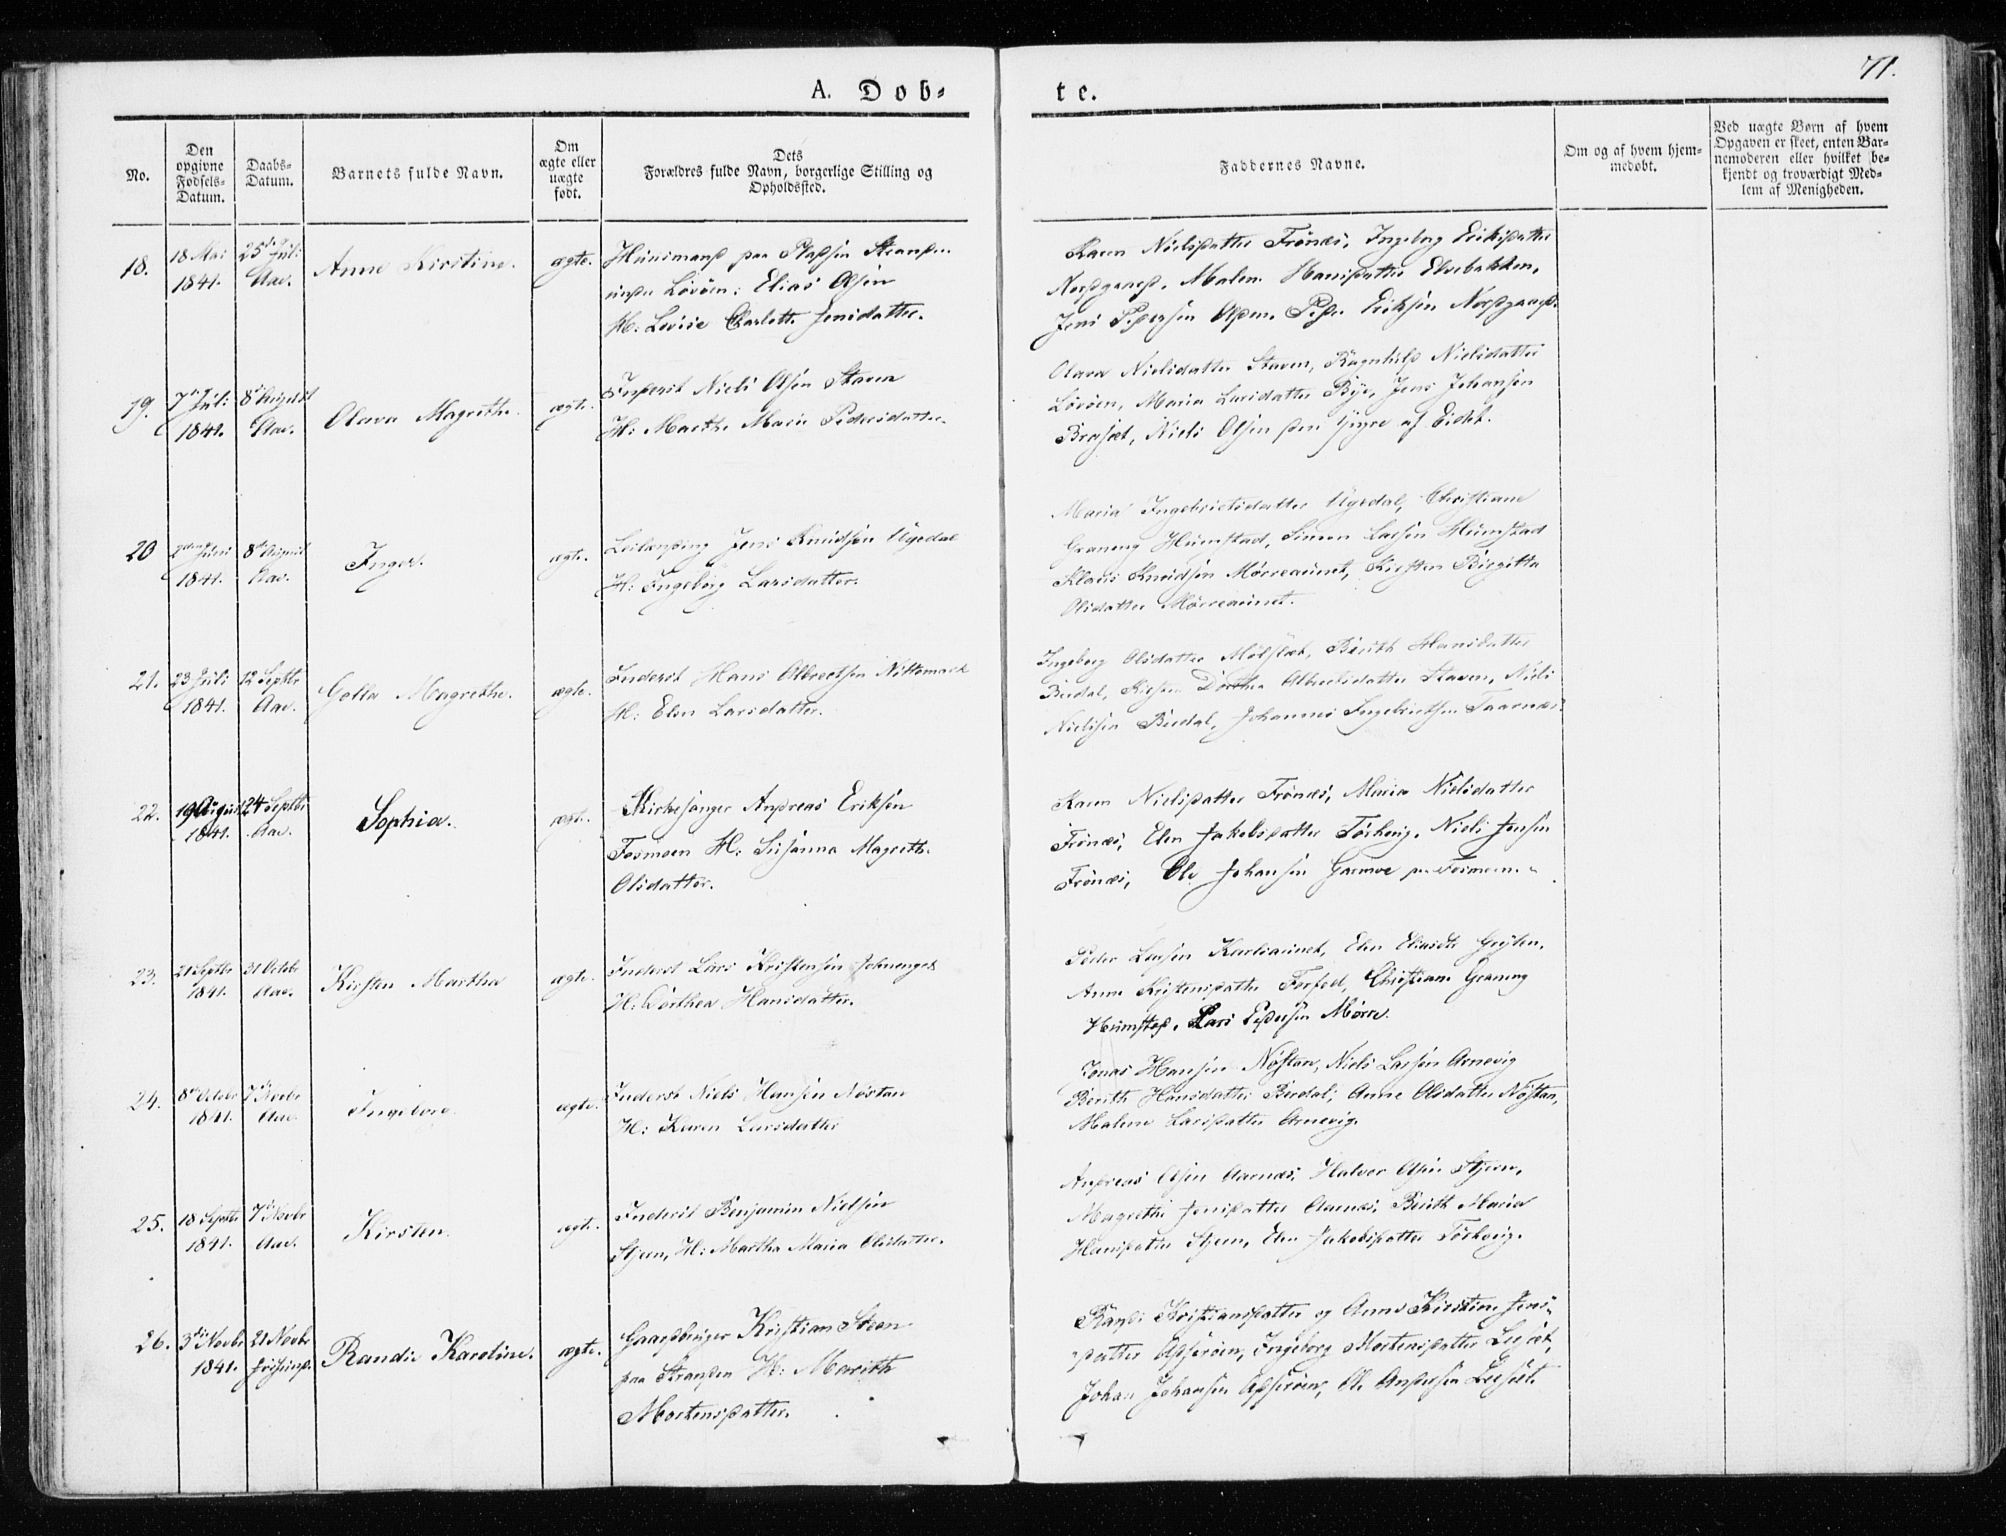 71.
A. Døb-
te.
No.
Den opgivne Fødsels-Datum.
Daabs-Datum.
Barnets fulde Navn.
Om ægte eller uægte født.
Dets Forældres fulde Navn, borgerlige Stilling og Opholdssted.
Faddernes Navne.
Om og af hvem hjemmedøbt.
Ved uægte Børn af hvem Opgaven er skeet, enten Barnemoderen eller hvilket bekjendt og troværdigt Medlem af Menigheden.
18.
18 Mai
1841.
25d Juli
Aae.
Anne Kirstine.
ægte.
Huusmand paa Pladsen
Løvøen: Elias Olsen
H: Lovise Carlotte Jensdatter.
Karen Nielsdatter Frønæs, Ingeborg Eriksdatter
Malen Hansdatter Elvebakken,
Jens Pedersen Peder Eriksen
19.
7d Juli
1841.
8d August
Aae.
Olava Magrethe.
ægte.
Inderst Niels Olsen Staven
H: Marthe Marie Pedersdatter.
Olava Nielsdatter Staven, Ragnhild Nielsdatter
Løvøen, Maria Larsdatter Bye, Jens Johansen
Niels Olsen
20
Juni
1841.
8d August
Aae.
Inger.
ægte.
Leilænding Jens Knudsen Uysdal
H: Ingeborg Larsdatter.
Maria Ingebrietsdatter Uysdal, Christiane
Graneng Humstad, Simon Larsen Humstad
Klaus Knudsen Mørreaunet, Kirsten Birgitta
Olsdatter Mørreaunet.
21.
23 Juli
1841.
12 Septbr
Aae.
Golla Magrethe.
ægte.
Inderst Hans Albrectsen Nittamark
H: Elen Larsdatter.
Ingeborg Olsdatter Berith Hansdatter
Berdal, Kirsten Dorthea Albrectsdatter Staven, Niels
Nielsen Berdal, Johannes Ingebrietsen Taarnæs
22.
19 August
1841.
24 Septbr
Aae.
Sophia.
ægte.
Kirkesanger Andreas Eriksen
Fosmoen H: Susanna Magreth.
Olsdatter.
Karen Nielsdatter Frønæs, Maria Nielsdatter
Frønæs, Elen Jakobsdatter Tørhvig, Niels Jensen
Frønæs, Ole Johansen Garmoe Fosmoen.
23.
21 Septbr
1841.
31 Octobr
Aae.
Kirsten Martha
ægte.
Inderst Lars Kristensen
H: Dorthea Hansdatter.
Peder Larsen Karlsaunet, Elen
Anne Kristensdatter Forfod, Christiane Graneng
Humstad, Lars Pedersen Mørre.
24.
8d Octobr
1841.
7d Novbr
Aae.
Ingeborg.
ægte.
Inderst Niels Hansen Nøstan
H: Karen Larsdatter
Jonas Hansen Nøstan, Niels Larsen Arnevig
Berith Hansdatter Berdal, Anne Olsdatter Nøstan,
Malene Larsdatter Arnevig.
25.
18 Septbr
1841.
7d Novbr
Aae.
Kirsten.
ægte.
Inderst Benjamin Nielsen
Stjern, H: Martha Maria Olsdatter.
Andreas Olsen Aarnæs, Halvor Olsen Stjern,
Magrethe Jensdatter Aarnæs, Berith Maria
Hansdatter Stjern, Elen Jakobsdatter Tørhvig.
26.
3die Novbr
1841.
21 Novbr
Randie Karoline.
ægte.
Gaardbruger Kristian Steen
paa Stranden H: Marith
Mortensdatter.
Randi Kristiansdatter og Anne Kirstine Jens-
datter Ingeborg Mortensdatter Leeset,
Johan Johansen Ole Andersen Leeset.